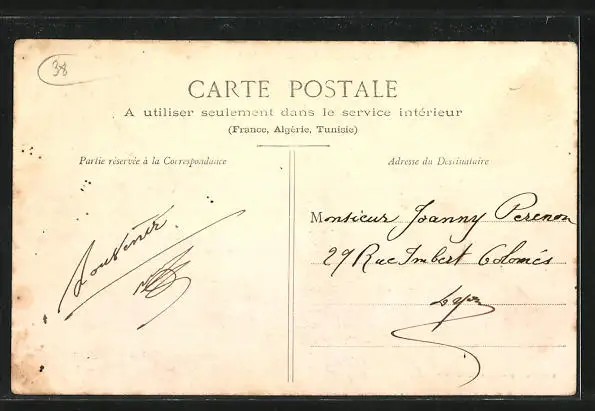 38
CARTE POSTALE
A utiliser seulement dans le service intérieur
(France, Algérie, Tunisie)
Partie réservée à la Correspondance
Adresse du Destinataire
Souvenir
Monsieur Joanny Perenon
29 Rue Imbert Colomés
Lyon